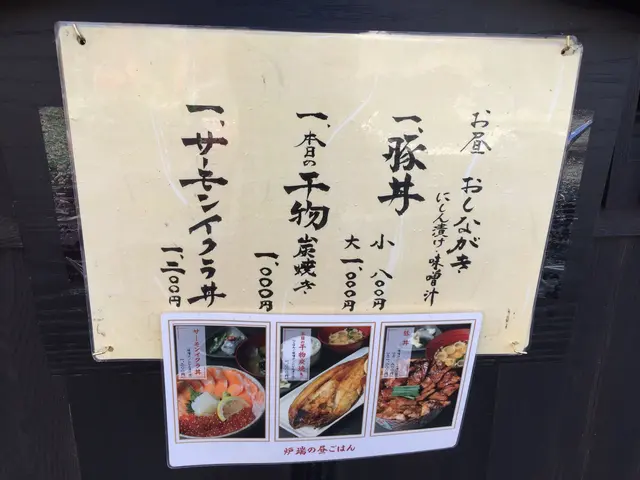 お昼 おしながき
にしん漬け・味噌汁
一、豚丼
小 八〇〇円
大 一、〇〇〇円
一、本日の干物炭焼き
一、〇〇〇円
一、サーモンイクラ丼
一、三〇〇円
サーモンイクラ丼
干物炭焼き
豚丼
炉瑞の昼ごはん